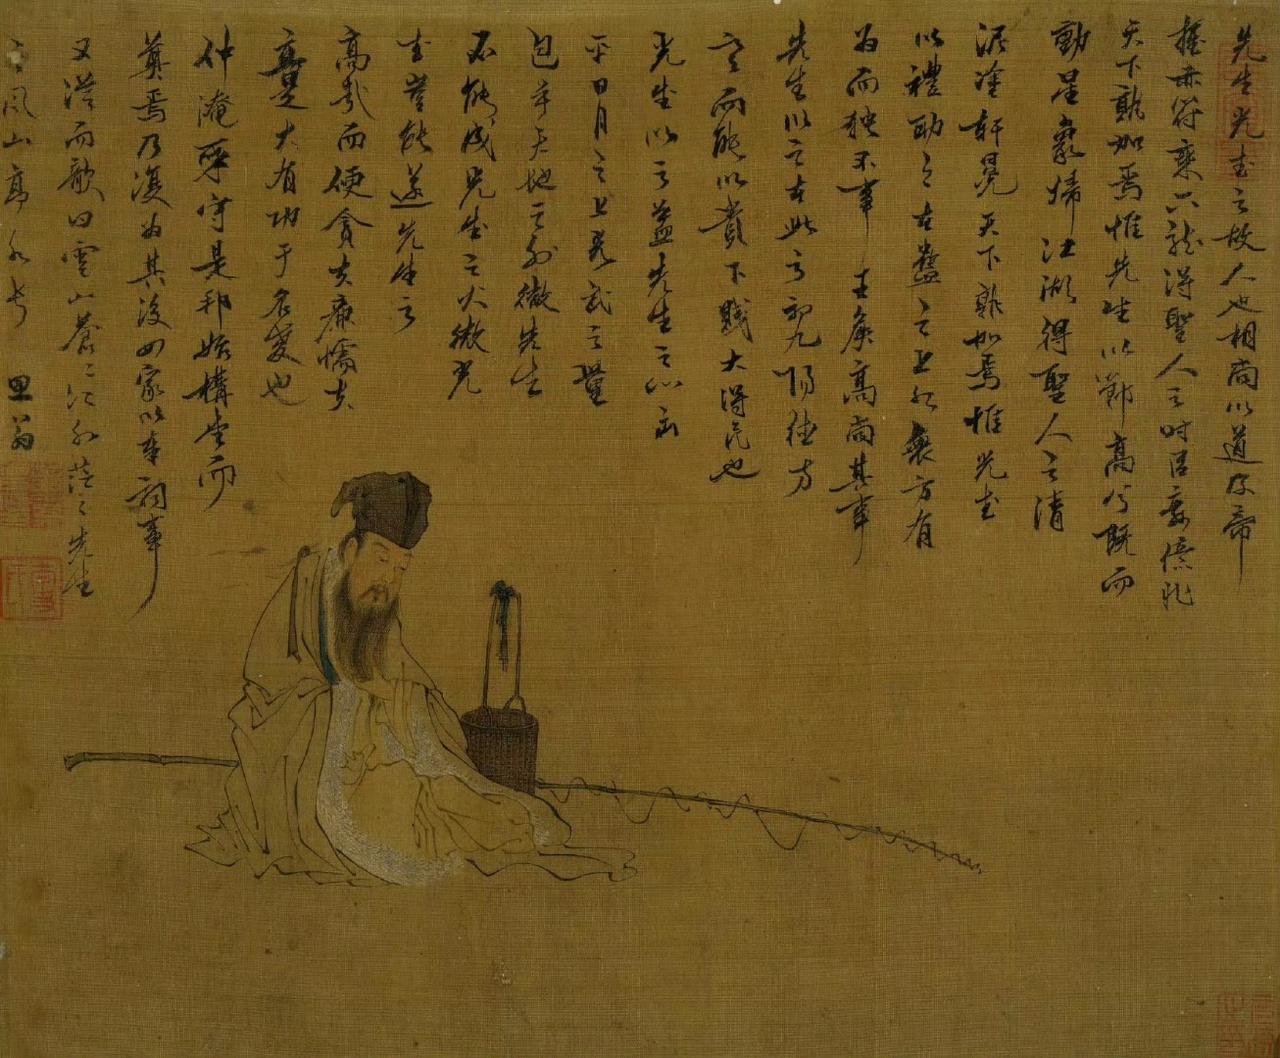 先生光武之故人也相尚以道及帝
握赤符乘六龍得聖人之時臣妾億兆
天下孰加焉惟先生以節高之既而
動星象歸江湖得聖人之清
泥塗軒冕天下孰加焉惟光武
以禮助之在蠱之上九衆方有
為而獨不事王侯高尚其事
先生以之在屯之初九陽德方
亨而能以貴下賤大得民也
光武以之蓋先生之心出
乎日月之上光武之量
包乎天地之外微先生
不能成光武之大微光
武豈能遂先生之
高哉而使貪夫廉懦夫
是大有功于名教也
仲淹來守是邦始構堂而
奠焉乃復為其後四家以奉祠事
又從而歌曰雲山蒼〻江水泱〻先生
之風山高水長 思翁